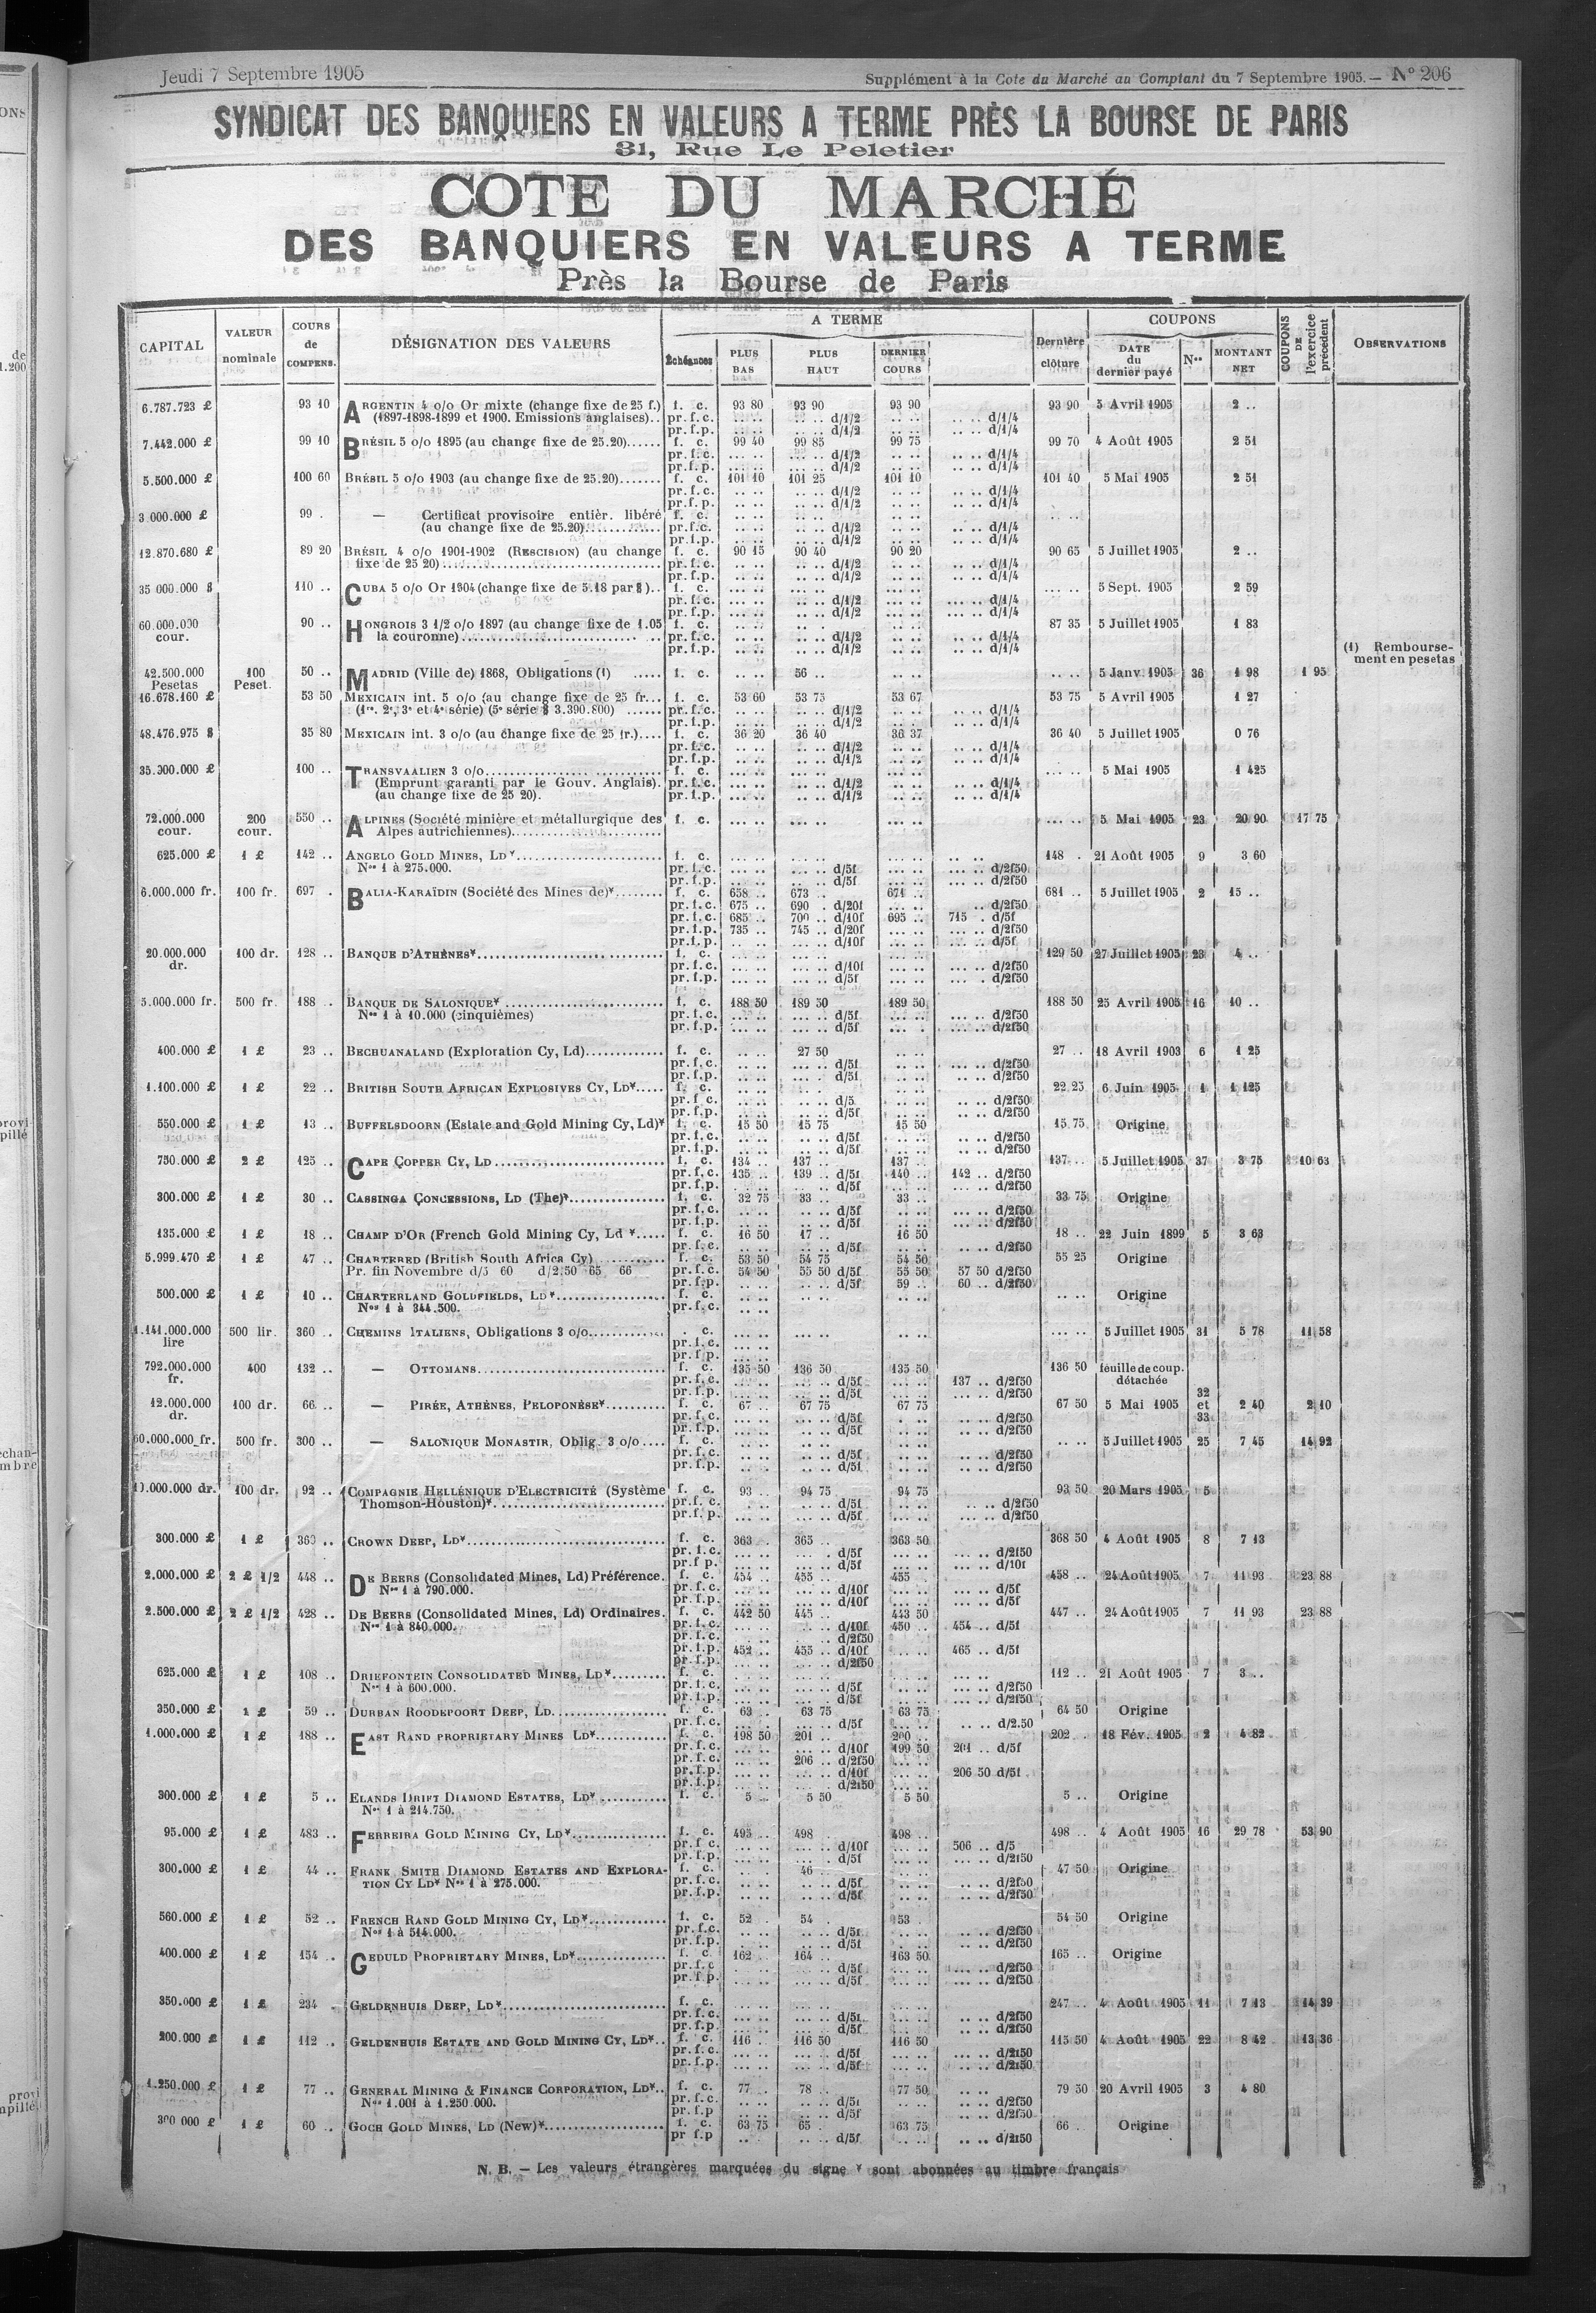 Jeudi 7 Septembre 1905
Supplément à la Cote du Marché au Comptant du 7 Septembre 1905.— N° 206
SYNDICAT DES BANQUIERS EN VALEURS A TERME PRÈS LA BOURSE DE PARIS
31, Rue Le Peletier
COTE DU MARCHÉ
DES BANQUIERS EN VALEURS A TERME
Près la Bourse de Paris
CAPITAL | VALEUR nominale | COURS de COMPENS. | DÉSIGNATION DES VALEURS | A TERME | Échéances | PLUS BAS | PLUS HAUT | DERNIER COURS | Dernière clôture | COUPONS | DATE du dernier payé | Nos | MONTANT NET | COUPONS DE l'exercice précédent | OBSERVATIONS
6.787.723 £ 93 10 ARGENTIN 4 o/o Or mixte (change fixe de 25 f.) f. c. 93 80 93 90 93 90 93 90 5 Avril 1905 2 ..
(1897-1898-1899 et 1900. Emissions anglaises).. pr.f.c. .. .. .. .. d/1/2 .. .. .. .. d/1/4
pr.f.p. .. .. .. .. d/1/2 .. .. .. .. d/1/4
7.442.000 £ 99 10 BRÉSIL 5 o/o 1895 (au change fixe de 25.20)...... f. c. 99 40 99 85 99 75 99 70 4 Août 1905 2 51
pr.f.c. .. .. .. .. d/1/2 .. .. .. .. d/1/4
pr.f.p. .. .. .. .. d/1/2 .. .. .. .. d/1/4
5.500.000 £ 100 60 BRÉSIL 5 o/o 1903 (au change fixe de 25.20)....... f. c. 101 10 101 25 101 10 101 40 5 Mai 1905 2 51
pr.f.c. .. .. .. .. d/1/2 .. .. .. .. d/1/4
pr.f.p. .. .. .. .. d/1/2 .. .. .. .. d/1/4
3 000.000 £ 99 . — Certificat provisoire entièr. libéré f. c. .. .. .. .. .. .. .. ..
(au change fixe de 25.20)............. pr.f.c. .. .. .. .. d/1/2 .. .. .. .. d/1/4
pr.f.p. .. .. .. .. d/1/2 .. .. .. .. d/1/4
12.870.680 £ 89 20 BRÉSIL 4 o/o 1901-1902 (RESCISION) (au change f. c. 90 15 90 40 90 20 90 65 5 Juillet 1905 2 ..
fixe de 25 20)............ pr.f.c. .. .. .. .. d/1/2 .. .. .. .. d/1/4
pr.f.p. .. .. .. .. d/1/2 .. .. .. .. d/1/4
35 000.000 $ 110 .. CUBA 5 o/o Or 1904 (change fixe de 5.18 par $).. f. c. .. .. .. .. .. .. .. .. 5 Sept. 1905 2 59
pr.f.c. .. .. .. .. d/1/2 .. .. .. .. d/1/4
pr.f.p. .. .. .. .. d/1/2 .. .. .. .. d/1/4
60.000.000 90 .. HONGROIS 3 1/2 o/o 1897 (au change fixe de 1.05 f. c. .. .. .. .. .. .. 87 35 5 Juillet 1905 1 83
cour. la couronne)............ pr.f.c. .. .. .. .. d/1/2 .. .. .. .. d/1/4
pr.f.p. .. .. .. .. d/1/2 .. .. .. .. d/1/4
(1) Rembourse-
ment en pesetas
42.500.000 100 50 .. MADRID (Ville de) 1868, Obligations (1) ..... f. c. .. .. 56 .. .. .. 5 Janv. 1905 36 1 98 1 95
Pesetas Peset.
16.678.160 £ 53 50 MEXICAIN int. 5 o/o (au change fixe de 25 fr... f. c. 53 60 53 75 53 67 53 75 5 Avril 1905 1 27
(1re, 2e, 3e et 4e série) (5e série $ 3.390.800) ...... pr.f.c. .. .. .. .. d/1/2 .. .. .. .. d/1/4
pr.f.p. .. .. .. .. d/1/2 .. .. .. .. d/1/4
48.476.975 $ 35 80 MEXICAIN int. 3 o/o (au change fixe de 25 fr.).... f. c. 36 20 36 40 36 37 36 40 5 Juillet 1905 0 76
pr.f.c. .. .. .. .. d/1/2 .. .. .. .. d/1/4
pr.f.p. .. .. .. .. d/1/2 .. .. .. .. d/1/4
35.000.000 £ 100 .. TRANSVAALIEN 3 o/o............ f. c. .. .. .. .. .. .. .. .. 5 Mai 1905 1 425
(Emprunt garanti par le Gouv. Anglais). pr.f.c. .. .. .. .. d/1/2 .. .. .. .. d/1/4
(au change fixe de 25 20). pr.f.p. .. .. .. .. d/1/2 .. .. .. .. d/1/4
72.000.000 200 550 .. ALPINES (Société minière et métallurgique des f. c. .. .. .. .. .. .. .. .. 5 Mai 1905 23 20 90 17 75
cour. cour. Alpes autrichiennes)............
625.000 £ 1 £ 142 .. ANGELO GOLD MINES, LD*............ f. c. .. .. .. .. .. .. .. .. 148 . 21 Août 1905 9 3 60
Nos 1 à 275.000. pr.f.c. .. .. .. .. d/5f .. .. .. .. d/2f50
pr.f.p. .. .. .. .. d/5f .. .. .. .. d/2f50
6.000.000 fr. 100 fr. 697 . BALIA-KARAÏDIN (Société des Mines de)*........ f. c. 658 .. 673 .. 671 .. 681 .. 5 Juillet 1905 2 15 ..
pr.f.c. 675 .. 690 . d/20f .. .. .. d/2f50
pr.f.c. 685 .. 700 .. d/10f 695 .. 715 . d/5f
pr.f.p. 735 .. 745 .. d/20f .. .. .. .. d/2f50
pr.f.p. .. .. .. .. d/10f .. .. .. .. d/5f
20.000.000 100 dr. 128 .. BANQUE D'ATHÈNES*............ f. c. .. .. .. .. .. .. 129 50 27 Juillet 1905 23 4 ..
dr. pr.f.c. .. .. .. .. d/10f .. .. .. .. d/2f50
pr.f.p. .. .. .. .. d/5f .. .. .. .. d/2f50
5.000.000 fr. 500 fr. 188 .. BANQUE DE SALONIQUE* ............ f. c. 188 50 189 50 189 50 188 50 25 Avril 1905 16 10 ..
Nos 1 à 10.000 (cinquièmes) pr.f.c. .. .. .. .. d/5f .. .. .. .. d/2f50
pr.f.p. .. .. .. .. d/5f .. .. .. .. d/2f50
400.000 £ 1 £ 23 .. BECHUANALAND (Exploration Cy, Ld)............ f. c. .. .. 27 50 .. .. 27 .. 18 Avril 1903 6 1 25
pr.f.c. .. .. .. .. d/5f .. .. .. .. d/2f50
pr.f.p. .. .. .. .. d/5f .. .. .. .. d/2f50
1.100.000 £ 1 £ 22 .. BRITISH SOUTH AFRICAN EXPLOSIVES CY, LD*..... f. c. .. .. .. .. .. .. 22 25 6 Juin 1905 1 1 125
pr.f.c .. .. .. .. d/5 .. .. .. .. d/2f50
pr.f.p. .. .. .. .. d/5f .. .. .. .. d/2f50
550.000 £ 1 £ 13 .. BUFFELSDOORN (Estate and Gold Mining Cy, Ld)* f. c. 15 50 15 75 15 50 15 75 Origine
pr.f.c. .. .. .. .. d/5f .. .. .. .. d/2f50
pr.f.p. .. .. .. .. d/5f .. .. .. .. d/2f50
750.000 £ 2 £ 125 .. CAPE COPPER CY, LD............ f. c. 134 .. 137 .. 137 .. 137 .. 5 Juillet 1905 37 3 75 10 63
pr.f.c. 135 .. 139 .. d/5f 140 .. 142 .. d/2f50
pr.f.p. .. .. .. .. d/5f .. .. .. .. d/2f50
300.000 £ 1 £ 30 .. CASSINGA CONCESSIONS, LD (The)*............ f. c. 32 75 33 .. 33 .. 33 75 Origine
pr.f.c. .. .. .. .. d/5f .. .. .. .. d/2f50
pr.f.p. .. .. .. .. d/5f .. .. .. .. d/2f50
135.000 £ 1 £ 18 .. CHAMP D'OR (French Gold Mining Cy, Ld *..... f. c. 16 50 17 .. 16 50 18 .. 22 Juin 1899 5 3 63
pr.f.c. .. .. .. .. d/5f .. .. .. .. d/2f50
5.999.470 £ 1 £ 47 .. CHARTERED (British South Africa Cy) .......... f. c. 53 50 54 75 54 50 55 25 Origine
Pr. fin Novembre d/5 60 d/2.50 65 66 pr.f.c. 54 50 55 50 d/5f 55 50 57 50 d/2f50
pr.f.p. .. .. .. .. d/5f 59 .. 60 .. d/2f50
500.000 £ 1 £ 10 .. CHARTERLAND GOLDFIELDS, LD*............ f. c. .. .. .. .. .. .. .. .. Origine
Nos 1 à 344.500. pr.f.c. .. ..
1.141.000.000 500 lir. 360 .. CHEMINS ITALIENS, Obligations 3 o/o............ . c. .. .. .. .. .. .. .. .. 5 Juillet 1905 31 5 78 11 58
lire pr.f.c. .. ..
pr.f.p. .. ..
792.000.000 400 132 .. — OTTOMANS............ f. c. 135 50 136 50 135 50 136 50 feuille de coup.
fr. pr.f.c. .. .. .. .. d/5f .. .. 137 .. d/2f50 détachée
pr.f.p. .. .. .. .. d/5f .. .. .. .. d/2f50
12.000.000 100 dr. 66 .. — PIRÉE, ATHÈNES, PELOPONÈSE*.......... f. c. 67 .. 67 75 67 75 67 50 5 Mai 1905 32 et 33 2 40 2 10
dr. pr.f.c. .. .. .. .. d/5f .. .. .. .. d/2f50
pr.f.p. .. .. .. .. d/5f .. .. .. .. d/2f50
60.000.000 fr. 500 fr. 300 .. — SALONIQUE MONASTIR, Oblig. 3 o/o .... f. c. .. .. .. .. .. .. .. .. 5 Juillet 1905 25 7 45 14 92
pr.f.c. .. .. .. .. d/5f .. .. .. .. d/2f50
pr.f.p. .. .. .. .. d/5f .. .. .. .. d/2f50
10.000.000 dr. 100 dr. 92 .. COMPAGNIE HELLÉNIQUE D'ELECTRICITÉ (Système f. c. 93 .. 94 75 94 75 93 50 20 Mars 1905 5
Thomson-Houston)*............ pr.f.c. .. .. .. .. d/5f .. .. .. .. d/2f50
pr.f.p. .. .. .. .. d/5f .. .. .. .. d/2f50
300.000 £ 1 £ 360 .. CROWN DEEP, LD*............ f. c. 363 .. 365 .. 363 50 368 50 4 Août 1905 8 7 13
pr.f.c. .. .. .. .. d/5f .. .. .. .. d/2f50
pr.f.p. .. .. .. .. d/5f .. .. .. .. d/10f
2.000.000 £ 2 £ 1/2 448 .. DE BEERS (Consolidated Mines, Ld) Préférence. f. c. 454 .. 455 .. 455 .. 458 .. 24 Août 1905 7 11 93 23 88
Nos 1 à 790.000. pr.f.c. .. .. .. .. d/10f .. .. .. .. d/5f
pr.f.p. .. .. .. .. d/10f .. .. .. .. d/5f
2.500.000 £ 2 £ 1/2 428 .. DE BEERS (Consolidated Mines, Ld) Ordinaires. f. c. 442 50 445 .. 443 50 447 .. 24 Août 1905 7 11 93 23 88
Nos 1 à 840.000. pr.f.c. .. .. .. .. d/10f 450 .. 454 .. d/5f
pr.f.c. .. .. .. .. d/2f50
pr.f.p. 452 .. 455 .. d/10f .. .. 465 .. d/5f
pr.f.p. .. .. .. .. d/2f50
625.000 £ 1 £ 108 .. DRIEFONTEIN CONSOLIDATED MINES, LD*......... f. c. .. .. .. .. .. .. .. .. 112 .. 21 Août 1905 7 3 ..
Nos 1 à 600.000. pr.f.c. .. .. .. .. d/5f .. .. .. .. d/2f50
pr.f.p. .. .. .. .. d/5f .. .. .. .. d/2f50
350.000 £ 1 £ 59 .. DURBAN ROODEPOORT DEEP, LD............ f. c. 63 .. 63 75 63 75 64 50 Origine
pr.f.c. .. .. .. .. d/5f .. .. .. .. d/2.50
1.000.000 £ 1 £ 188 .. EAST RAND PROPRIETARY MINES LD*............ f. c. 198 50 201 .. 200 .. 202 . 18 Fév. 1905 2 4 82
pr.f.c. .. .. .. .. d/10f 199 50 201 .. d/5f
pr.f.c. .. .. 206 .. d/2f50
pr.f.p. .. .. .. .. d/10f .. .. 206 50 d/5f
pr.f.p. .. .. .. .. d/2f50
300.000 £ 1 £ 5 .. ELANDS DRIFT DIAMOND ESTATES, LD* ........... f. c. 5 .. 5 50 5 50 5 .. Origine
Nos 1 à 214.750.
95.000 £ 1 £ 483 .. FERREIRA GOLD MINING CY, LD*............ f. c. 495 .. 498 .. 498 .. 498 .. 4 Août 1905 16 29 78 53 90
pr.f.c .. .. .. .. d/10f .. .. 506 .. d/5
pr.f.p. .. .. .. .. d/5f .. .. .. .. d/2f50
300.000 £ 1 £ 44 .. FRANK SMITH DIAMOND ESTATES AND EXPLORA- f. c. .. 46 .. .. .. 47 50 Origine
TION CY LD* Nos 1 à 275.000. pr.f.c. .. .. .. .. d/5f .. .. .. .. d/2f50
pr.f.p. .. .. .. .. d/5f .. .. .. .. d/2f50
560.000 £ 1 £ 52 .. FRENCH RAND GOLD MINING CY, LD*............ f. c. 52 . 54 .. 53 .. 54 50 Origine
Nos 1 à 514.000. pr.f.c. .. .. .. .. d/5f .. .. .. .. d/2f50
pr.f.p. .. .. .. .. d/5f .. .. .. .. d/2f50
400.000 £ 1 £ 154 .. GEDULD PROPRIETARY MINES, LD*............ f. c. 162 .. 164 .. 163 50 165 .. Origine
pr.f.c .. .. .. .. d/5f .. .. .. .. d/2f50
pr.f.p. .. .. .. .. d/5f .. .. .. .. d/2f50
350.000 £ 1 £ 234 . GELDENHUIS DEEP, LD*............ f. c. .. .. .. .. .. .. 247 .. 4 Août 1905 11 7 13 14 39
pr.f.c. .. .. .. .. d/5f .. .. .. .. d/2f50
pr.f.p. .. .. .. .. d/5f .. .. .. .. d/2f50
200.000 £ 1 £ 112 .. GELDENHUIS ESTATE AND GOLD MINING CY, LD*.. f. c. 116 .. 116 50 116 50 115 50 4 Août 1905 22 8 42 13 36
pr.f.c. .. .. .. .. d/5f .. .. .. .. d/2f50
pr.f.p. .. .. .. .. d/5f .. .. .. .. d/2f50
1.250.000 £ 1 £ 77 .. GENERAL MINING & FINANCE CORPORATION, LD*.. f. c. 77 . 78 .. 77 50 .. .. 79 50 20 Avril 1905 3 4 80
Nos 1.001 à 1.250 000. pr.f.c. .. .. .. .. d/5f .. .. .. .. d/2f50
pr.f.p .. .. .. .. d/5f .. .. .. .. d/2f50
300 000 £ 1 £ 60 .. GOCH GOLD MINES, LD (New)*............ f. c. 63 75 65 . 63 75 66 .. Origine
pr f.p .. .. .. .. d/5f .. .. .. .. d/2f50
N. B. — Les valeurs étrangères marquées du signe * sont abonnées au timbre français